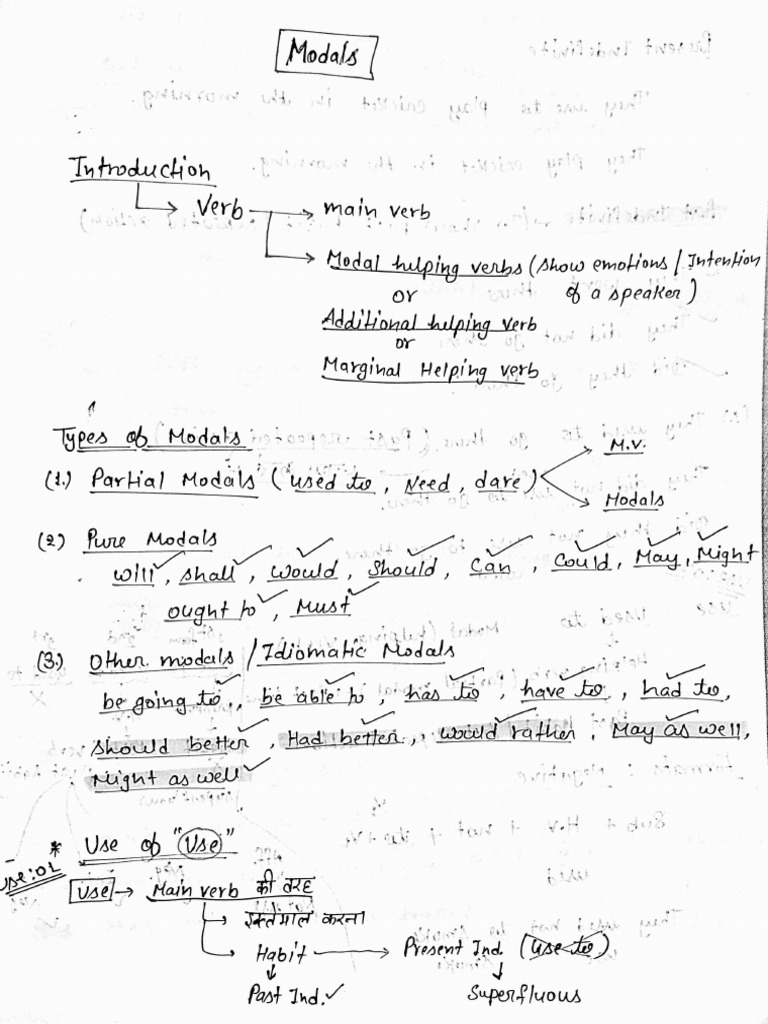 Modals
Introduction
Verb → main verb
Modal helping verbs (show emotions / Intention
or of a speaker)
Additional helping verb
or
Marginal Helping verb
Types of Modals
(1.) Partial Modals (used to, Need, dare) M.V.
Modals
(2) Pure Modals
will, shall, would, should, can, could, May, Might
ought to, Must
(3.) Other modals / Idiomatic Modals
be going to, be able to, has to, have to, had to,
should better, Had better, would rather, May as well,
Might as well
* Use of "Use"
use:01
use → Main verb की तरह
इस्तेमाल करना
Habit → Present Ind. (use to)
Past Ind. ✓ Superfluous